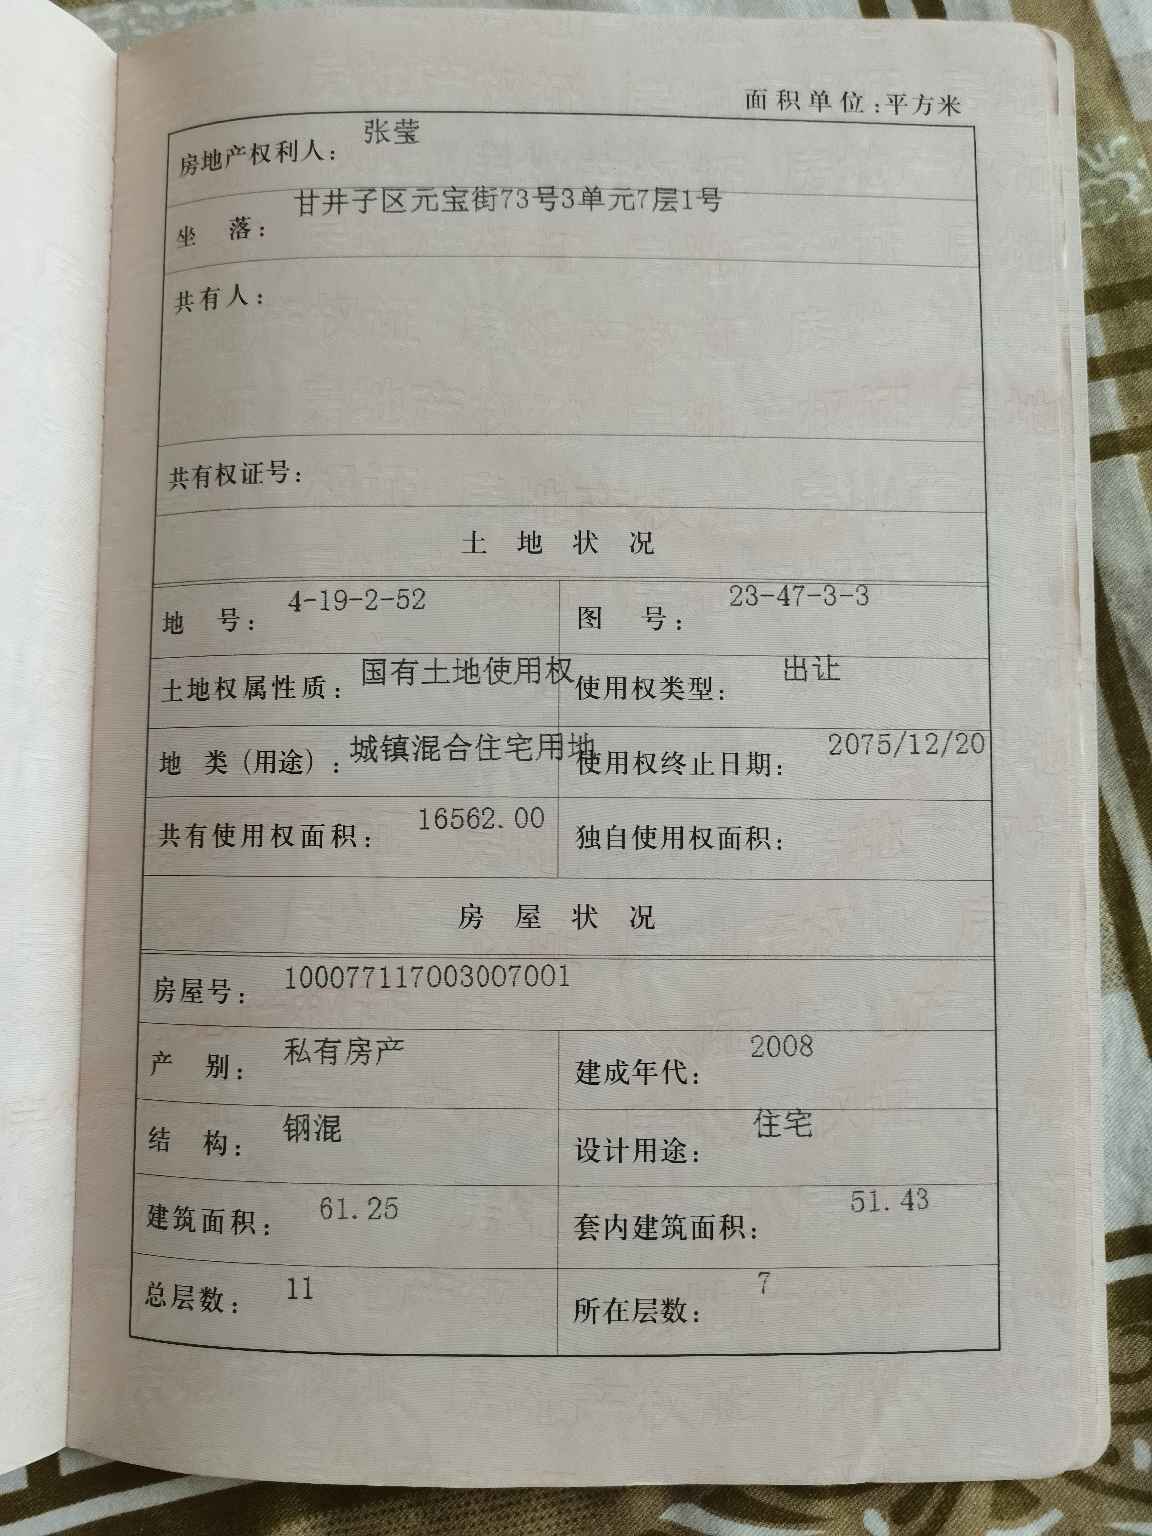 面积单位:平方米
房地产权利人: 张莹
坐 落: 甘井子区元宝街73号3单元7层1号
共有人:
共有权证号:
土地状况
地 号: 4-19-2-52 图 号: 23-47-3-3
土地权属性质: 国有土地使用权 使用权类型: 出让
地 类(用途): 城镇混合住宅用地 使用权终止日期: 2075/12/20
共有使用权面积: 16562.00 独自使用权面积:
房屋状况
房屋号: 100077117003007001
产 别: 私有房产 建成年代: 2008
结 构: 钢混 设计用途: 住宅
建筑面积: 61.25 套内建筑面积: 51.43
总层数: 11 所在层数: 7